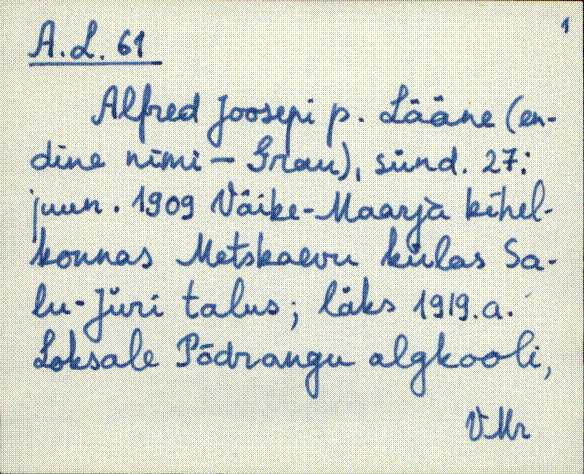 1
A.L. 61
Alfred Joosepi p. Lääne (en-
dine nimi – Grau), sünd. 27.
juun. 1909 Väike-Maarja kihel-
konnas Metskaevu külas Sa-
lu-Jüri talus; läks 1919.a.
Loksale Põdrangu algkooli,
VMr